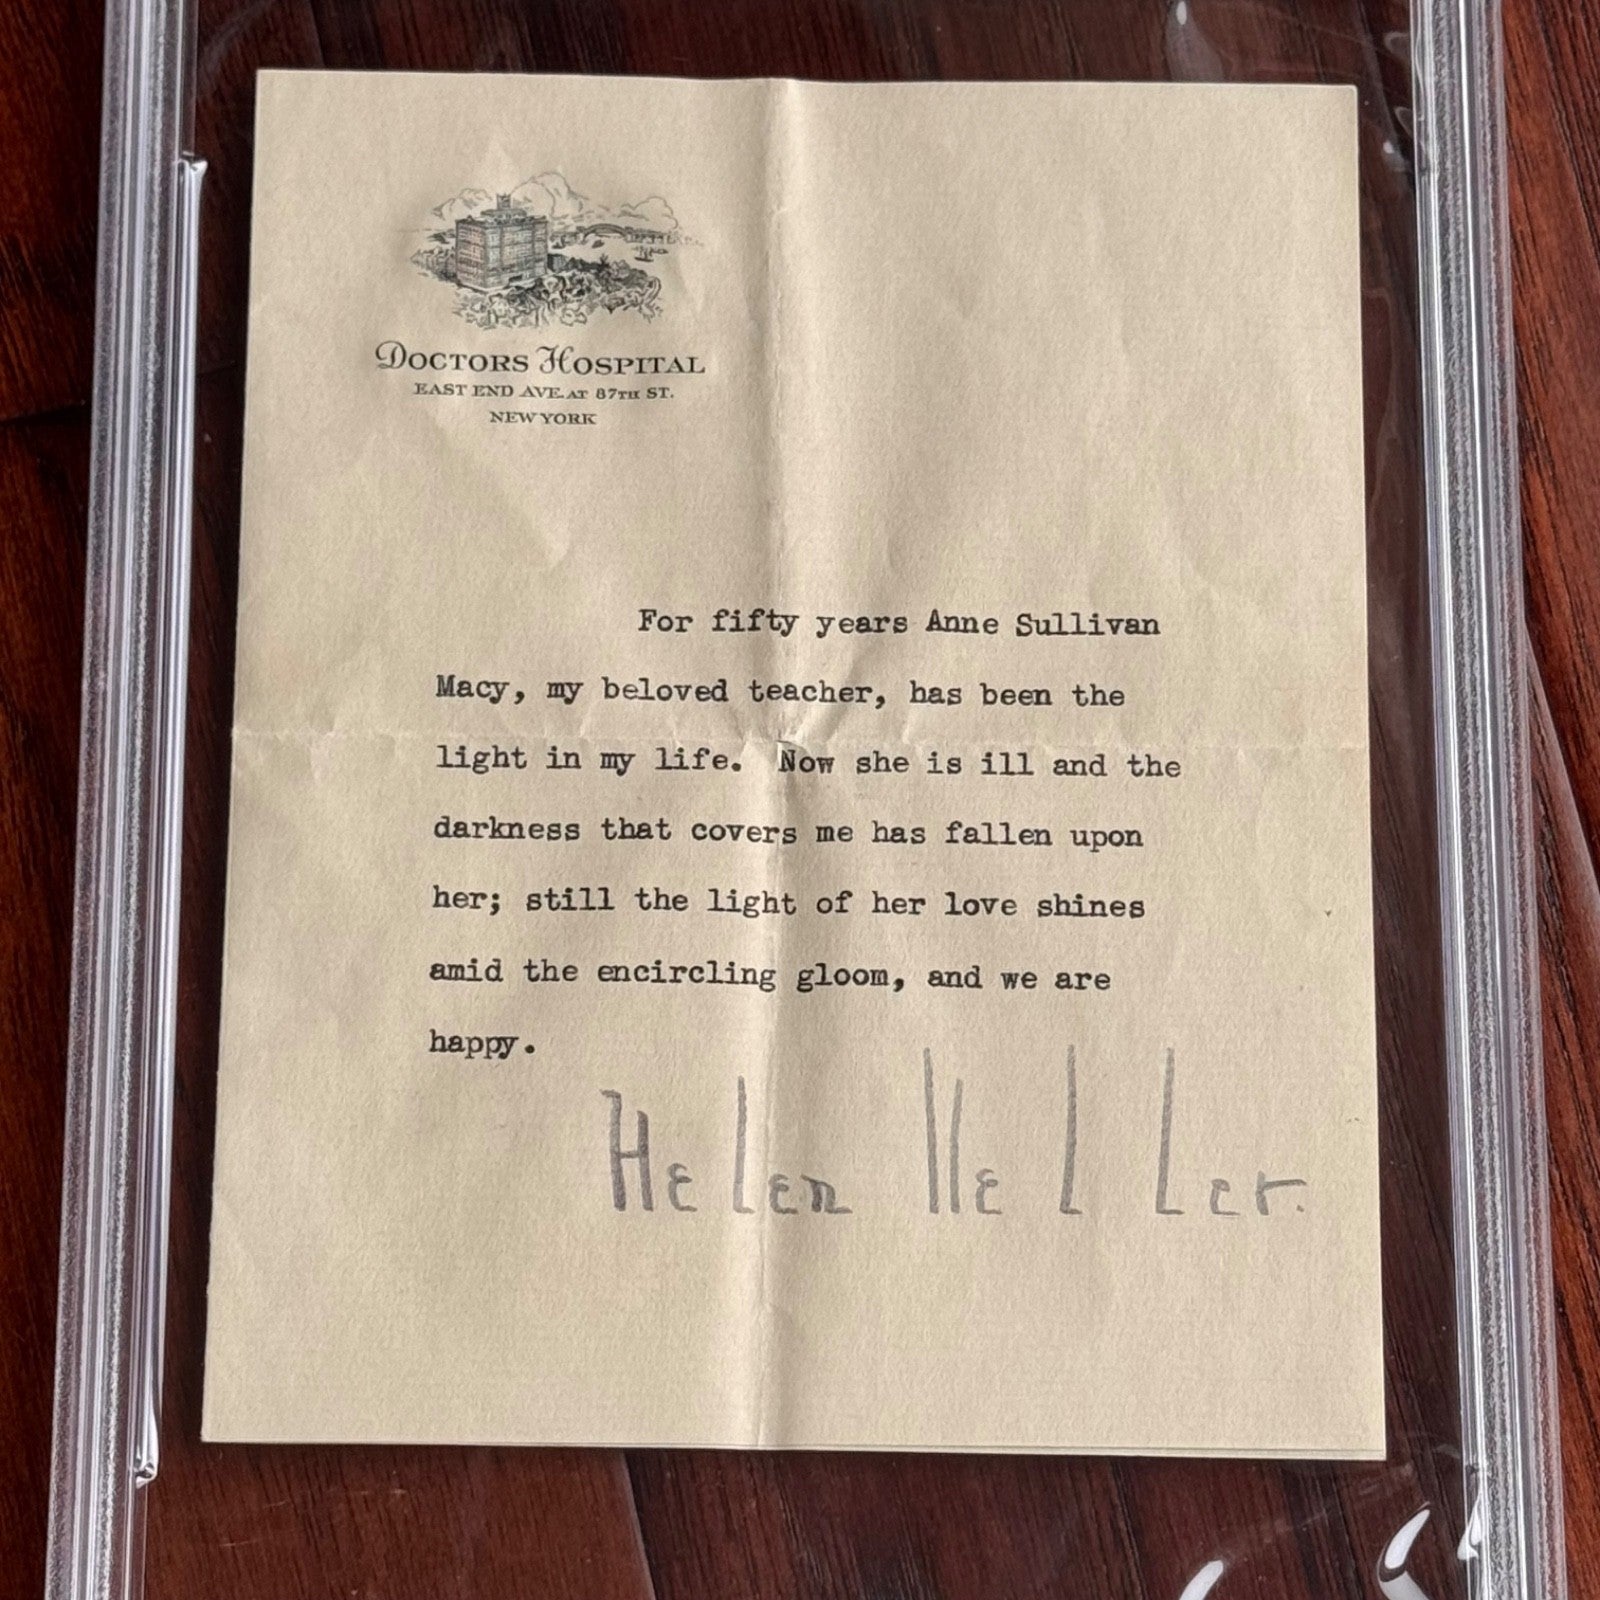 DOCTORS HOSPITAL
EAST END AVE. AT 87TH ST.
NEW YORK
For fifty years Anne Sullivan
Macy, my beloved teacher, has been the
light in my life. Now she is ill and the
darkness that covers me has fallen upon
her; still the light of her love shines
amid the encircling gloom, and we are
happy.
Helen Keller.